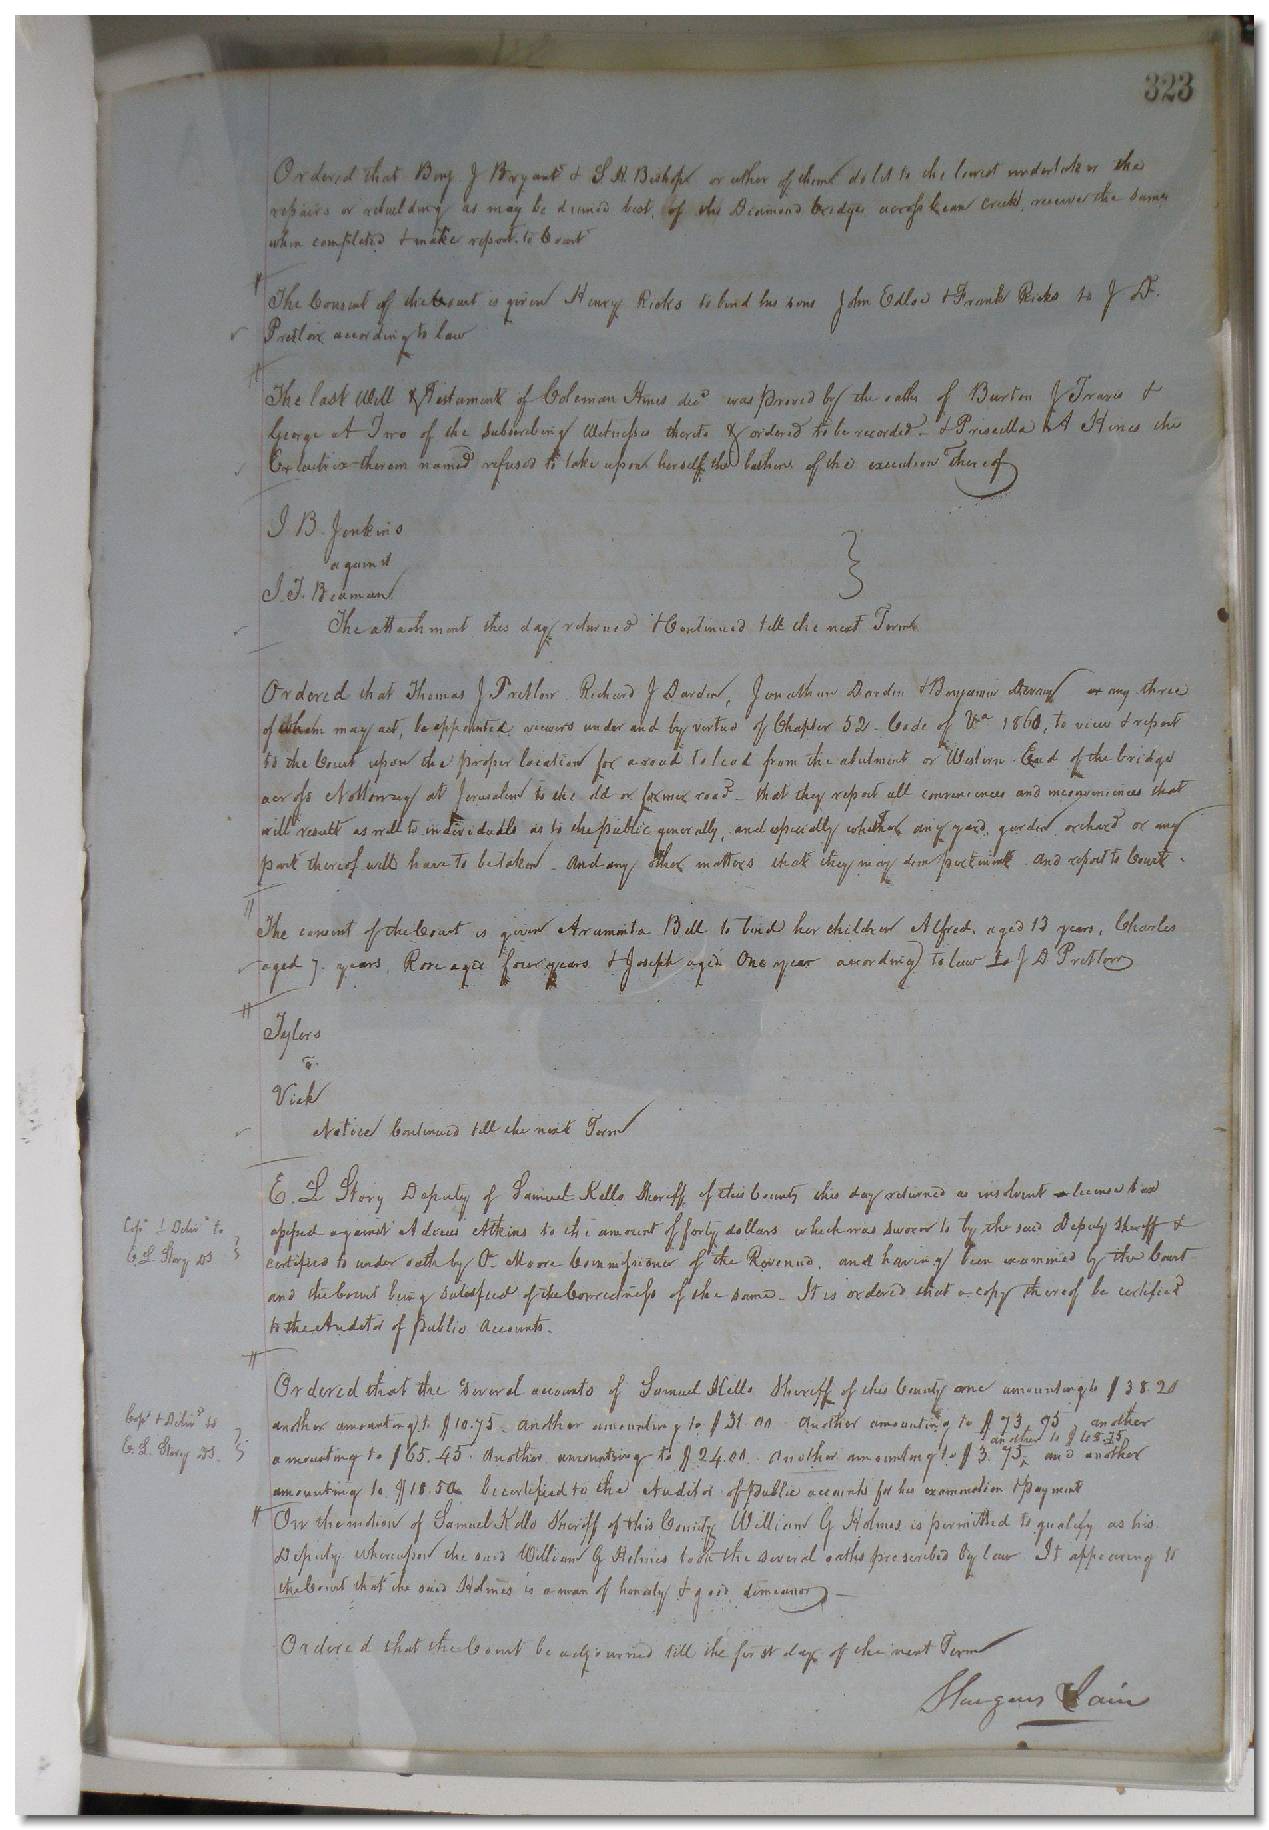 323
Ordered that Benj J Bryant & S. H. Bishop or either of them do let to the lowest undertaker the
repairs or rebuilding as may be deemed best, of the Diamond bridge across bean creek, receive the same
when completed & make report to Court
The Consent of the Court is given Henry Ricks to bind his sons John Edloe & Frank Ricks to J D.
Pretlow according to law
The last Will & Testament of Coleman Hines decd was proved by the oaths of Burton J Travis &
George A Two of the subscribing Witnesses thereto & ordered to be recorded - & Priscilla A Hines the
Executrix therein named refused to take upon herself the of the execution thereof
J B. Jenkins
against
J. T. Beaman
The attachment this day returned & Continued till the next Term
Ordered that Thomas J Pretlow Richard J Darden, Jonathan Darden & Benjamin or any three
of whom may act, be appointed viewers under and by virtue of Chapter 52. Code of Va 1860, to view & report
to the Court upon the proper location for a road to lead from the abutment or Western End of the bridge
across Nottoway at Jerusalem to the old or former road - that they report all conveniences and inconveniences that
will result as well to individuals as to the public generally, and especially whether any yard, garden orchard or any
part thereof will have to be taken - and any other matters that they may deem pertinent and report to Court.
The consent of the Court is given Araminta Bell to bind her children Alfred, aged 13 years, Charles
aged 7. years, Rose aged four years & Joseph aged One year according to law to J D Pretlow
Tylers
v.
Vick
Notice Continued till the next Term
E. L Story Deputy of Samuel Kello Sheriff of this County this day returned as insolvent a license tax
assessed against Atkins to the amount of forty dollars which was sworn to by the said Deputy Sheriff &
Cop & Delivd to
E. L. Story DS
certified to under oath by O. Moore Commissioner of the Revenue, and having been examined by the Court
and the Court being satisfied of the Correctness of the same - It is ordered that a copy thereof be certified
to the Auditor of public accounts.
Ordered that the several accounts of Samuel Kello Sheriff of this County one amounting to $38.20
Cop & Delivd to
E. L. Story DS.
another amounting to $10.75. another amounting to $31.00 another amounting to $73.95, another
amounting to $65.45. another amounting to $24.00. another amounting to $3.75, another to $105.75, and another
amounting to $18.50 be certified to the Auditor of public accounts for his examination & payment
On the motion of Samuel Kello Sheriff of this County William G Holmes is permitted to qualify as his
Deputy whereupon the said William G Holmes took the several oaths prescribed by law It appearing to
the Court that the said Holmes is a man of honesty & good demeanor -
Ordered that the Court be adjourned till the first day of the next Term